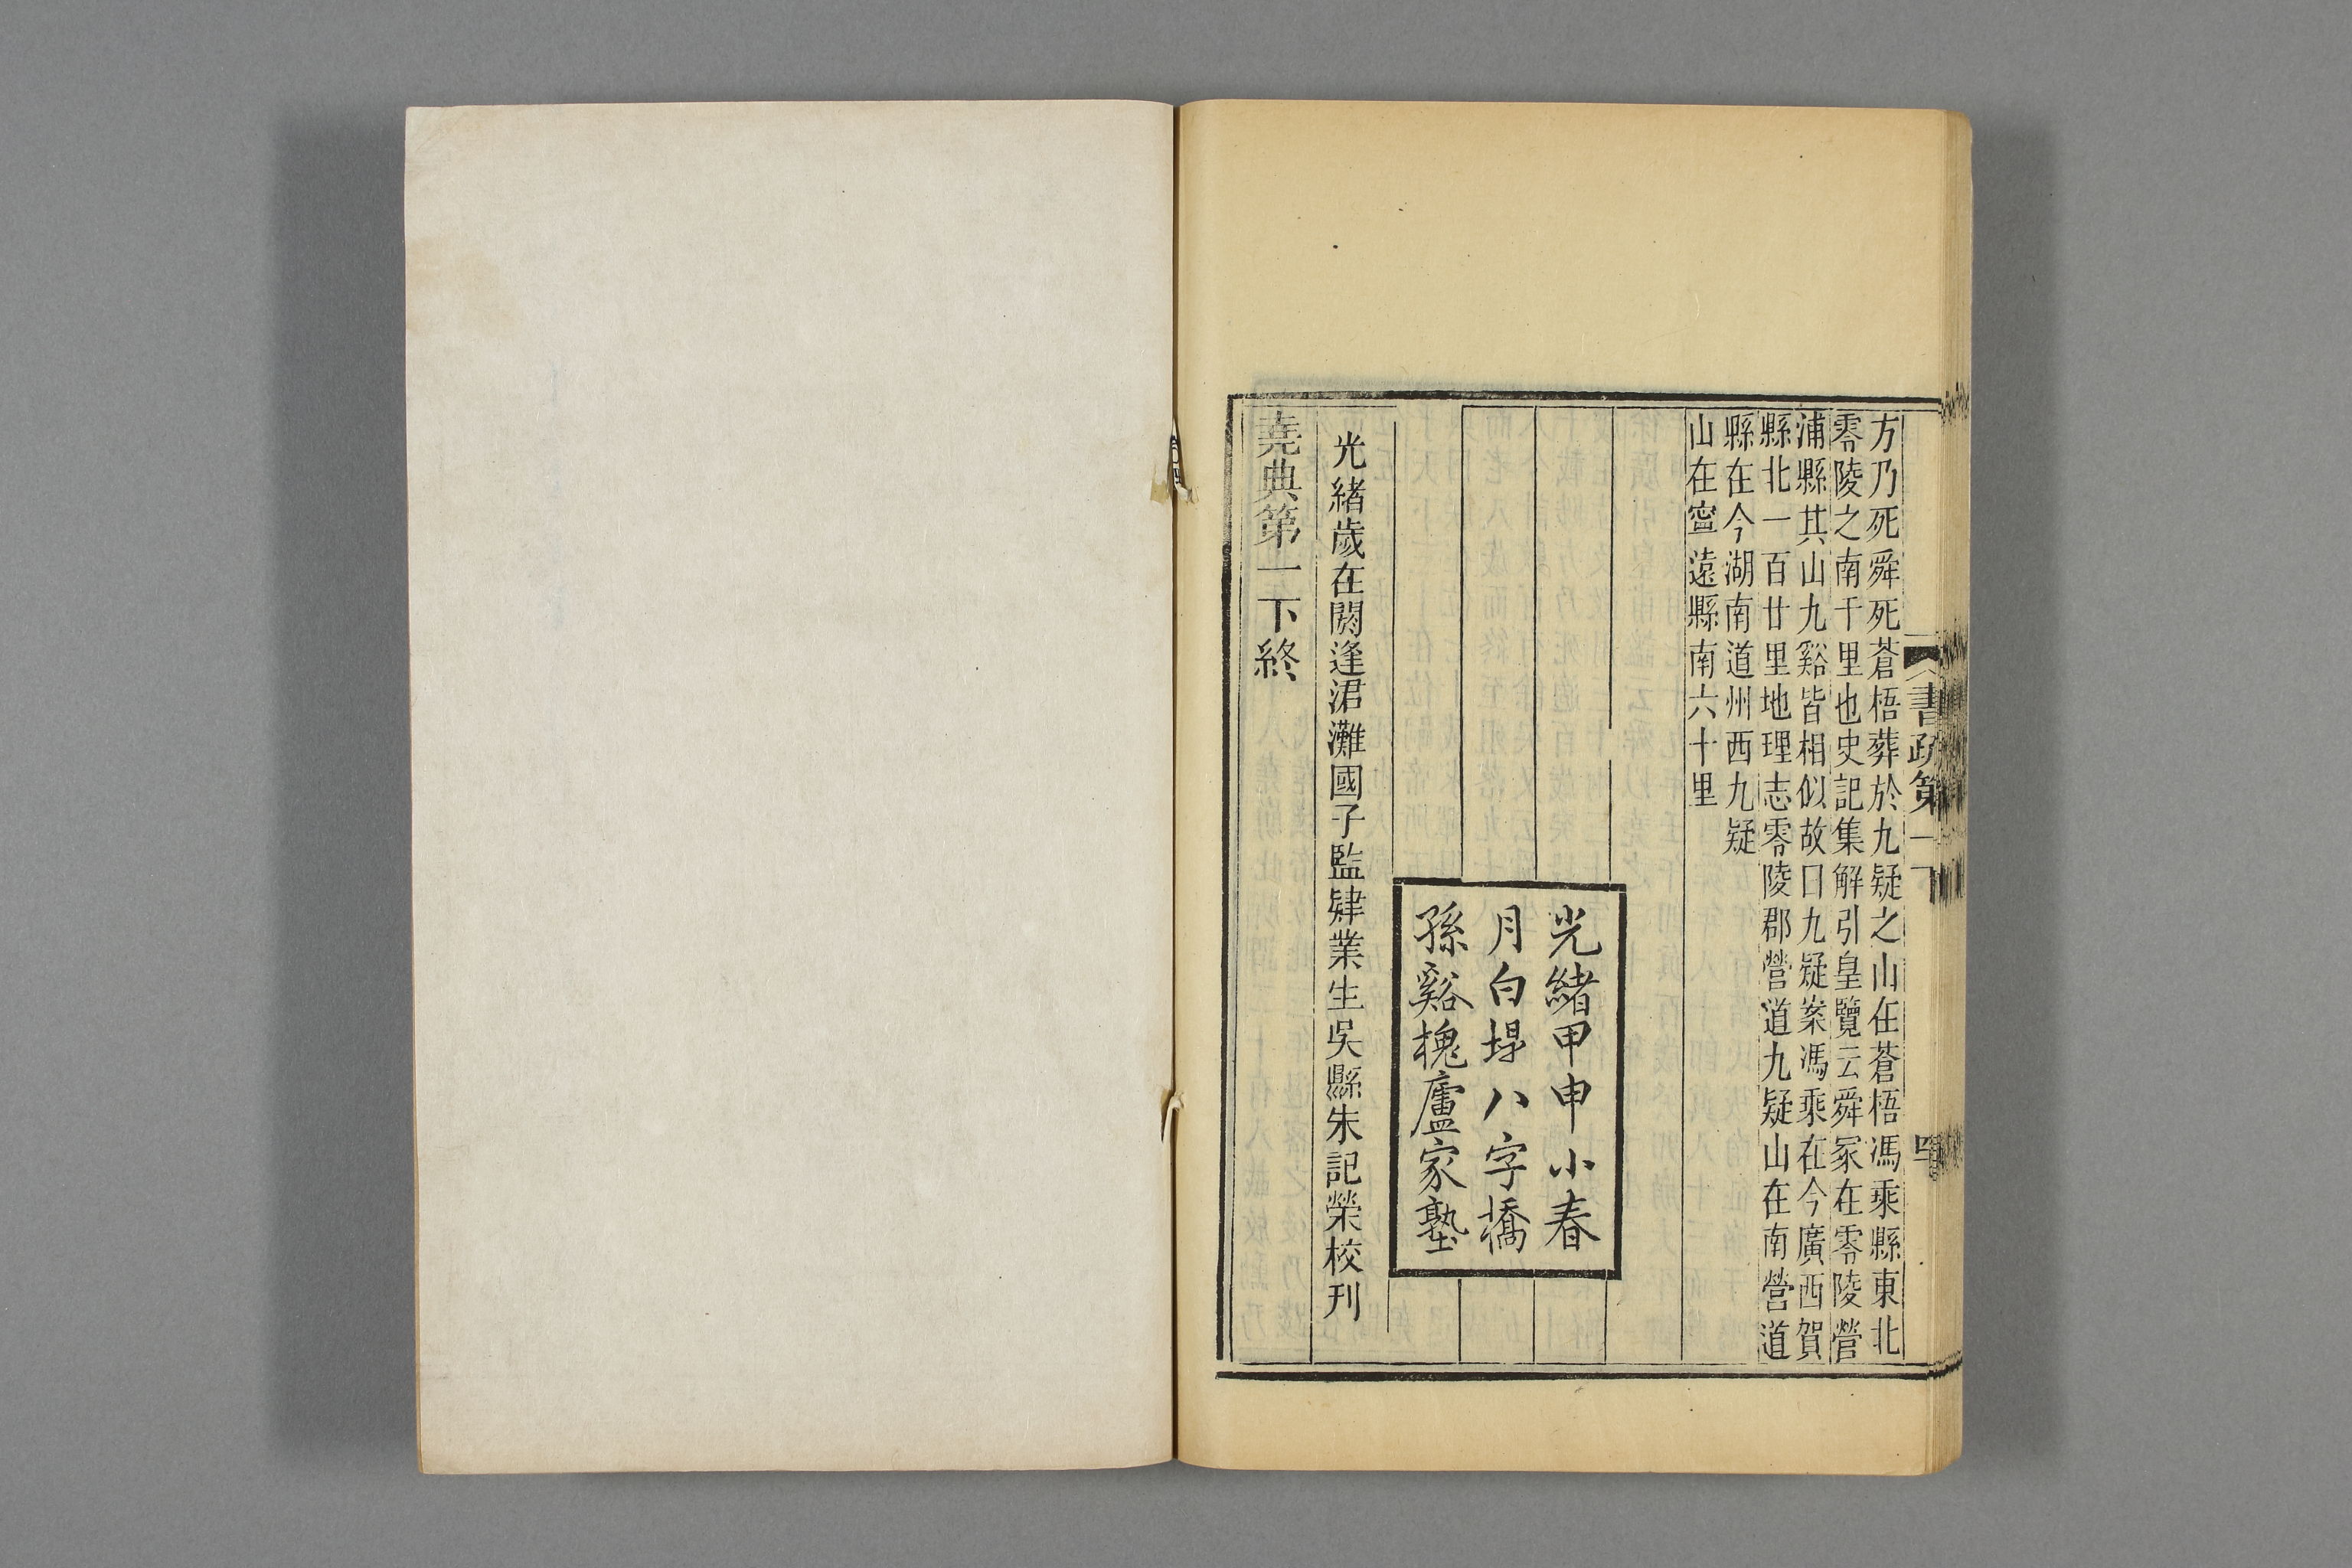 方乃死舜死蒼梧葬於九疑之山在蒼梧馮乘縣東北
零陵之南千里也史記集解引皇覽云舜冢在零陵營
浦縣其山九谿皆相似故曰九疑案馮乘在今廣西賀
縣北一百廿里地理志零陵郡營道九疑山在南營道
縣在今湖南道州西九疑
山在寍遠縣南六十里
光緒甲申小春
月白堤八字橋
孫谿槐廬家塾
光緒歲在閼逢涒灘國子監肄業生吳縣朱記榮校刊
堯典第一下終
書疏第一下